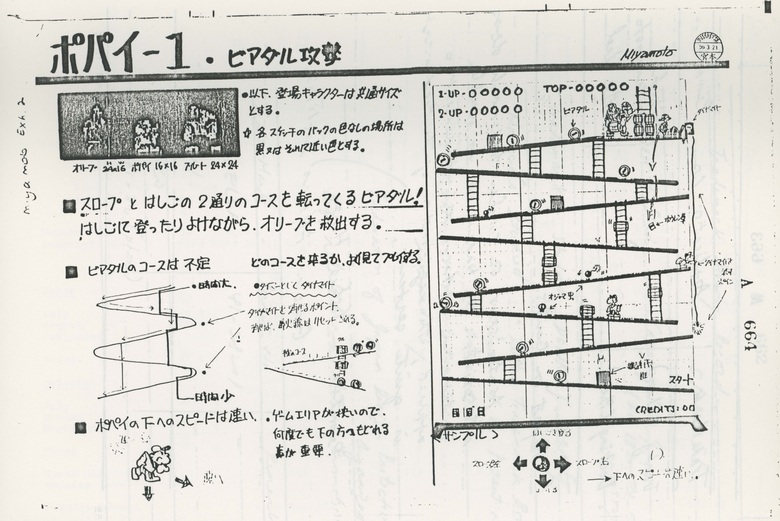 ポパイー1・ビアダル攻撃
Miyamoto
宮本
miyamoto Exh. 2
オリーブ 24×16 ポパイ 16×16 ブルート 24×24
●以下、登場キャラクターは共通サイズ
とする。
各スケッチのバックの色なしの場所は
黒又はそれに近い色とする。
■スロープとはしごの2通りのコースを転ってくるビアダル!
はしごに登ったりよけながら、オリーブを救出する。
■ビアダルのコースは不定
どのコースを来るか、よく見てプレイする。
時間大
●タイマーとしてダイナマイト
時間小
■ポパイの下へのスピードは速い
・ゲームエリアが狭いので、
何度でも下の方へもどれる
事が重要
1-UP-OOOOO
TOP-OOOOO
2-UP-OOOOO
ビアダル
オジャマ虫
スタート
CREDIT:00
サンプル
スロープ左
スロープ右
→下へのスピードは速い。
A 664